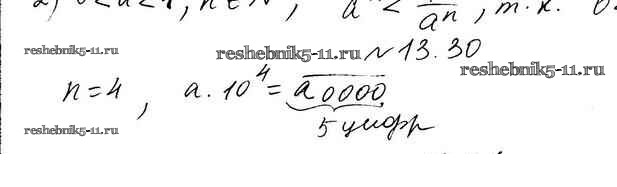 2) 0<a<1, n∈N, aⁿ < 1/aⁿ, т.к. 0
reshebnik5-11.ru reshebnik5-11.ru №13.30 reshebnik5-11.ru
n=4, a·10⁴=a0000
5 цифр
reshebnik5-11.ru